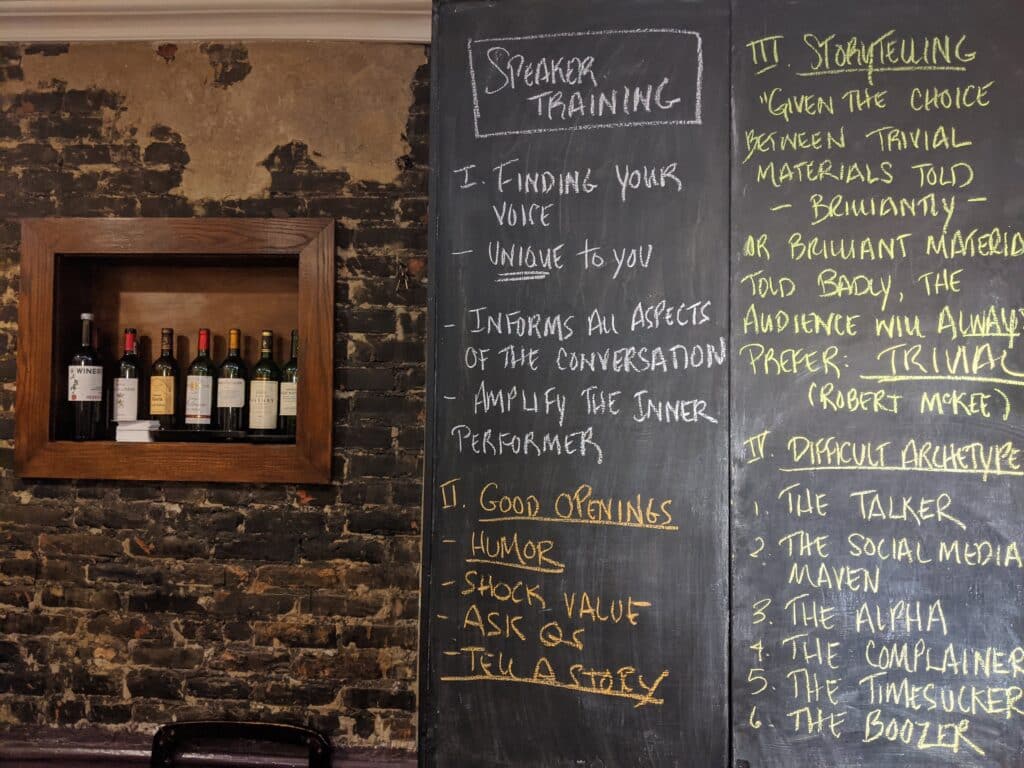 SPEAKER
TRAINING
I. FINDING YOUR
VOICE
- UNIQUE to you
- INFORMS All ASPECTS
OF THE CONVERSATION
- AMPLIFY THE INNER
PERFORMER
II. GOOD OPENINGS
- HUMOR
- SHOCK VALUE
- ASK QS
- TELL A STORY
III. STORYTELLING
"GIVEN THE CHOICE
BETWEEN TRIVIAL
MATERIALS TOLD
- BRILLIANTLY -
OR BRILLIANT MATERIA
TOLD BADLY, THE
AUDIENCE WILL ALWAY
PREFER: TRIVIAL
(ROBERT MCKEE)
IV. DIFFICULT ARCHETYPE
1. THE TALKER
2. THE SOCIAL MEDIA
MAVEN
3. THE ALPHA
4. THE COMPLAINER
5. THE TIMESUCKER
6. THE BOOZER
WINERY